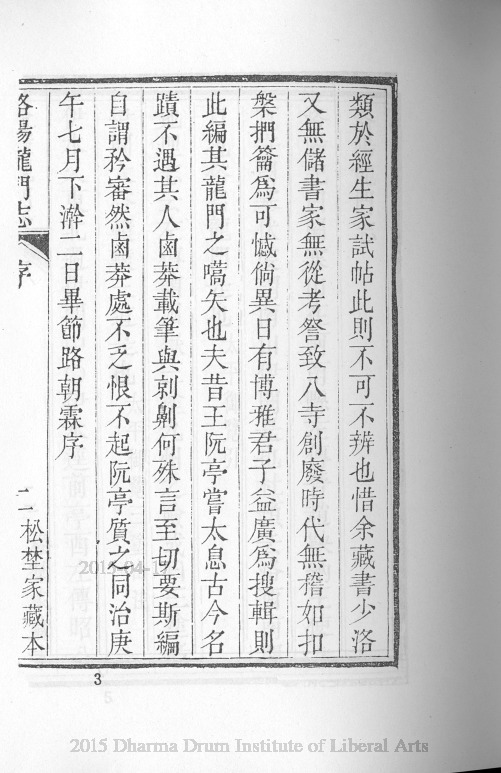 類於經生家試帖此則不可不辨也惜余藏書少洛
又無儲書家無從考詧致八寺創廢時代無稽如扣
槃捫籥爲可憾倘異日有博雅君子益廣爲搜輯則
此編其龍門之嚆矢也夫昔王阮亭嘗太息古今名
蹟不遇其人鹵莽載筆與剠劓何殊言至切要斯編
自謂矜審然鹵莽處不乏恨不起阮亭質之同治庚
午七月下澣二日畢節路朝霖序
洛陽龍門志
序
二
松埜家藏本
3
2015 Dharma Drum Institute of Liberal Arts